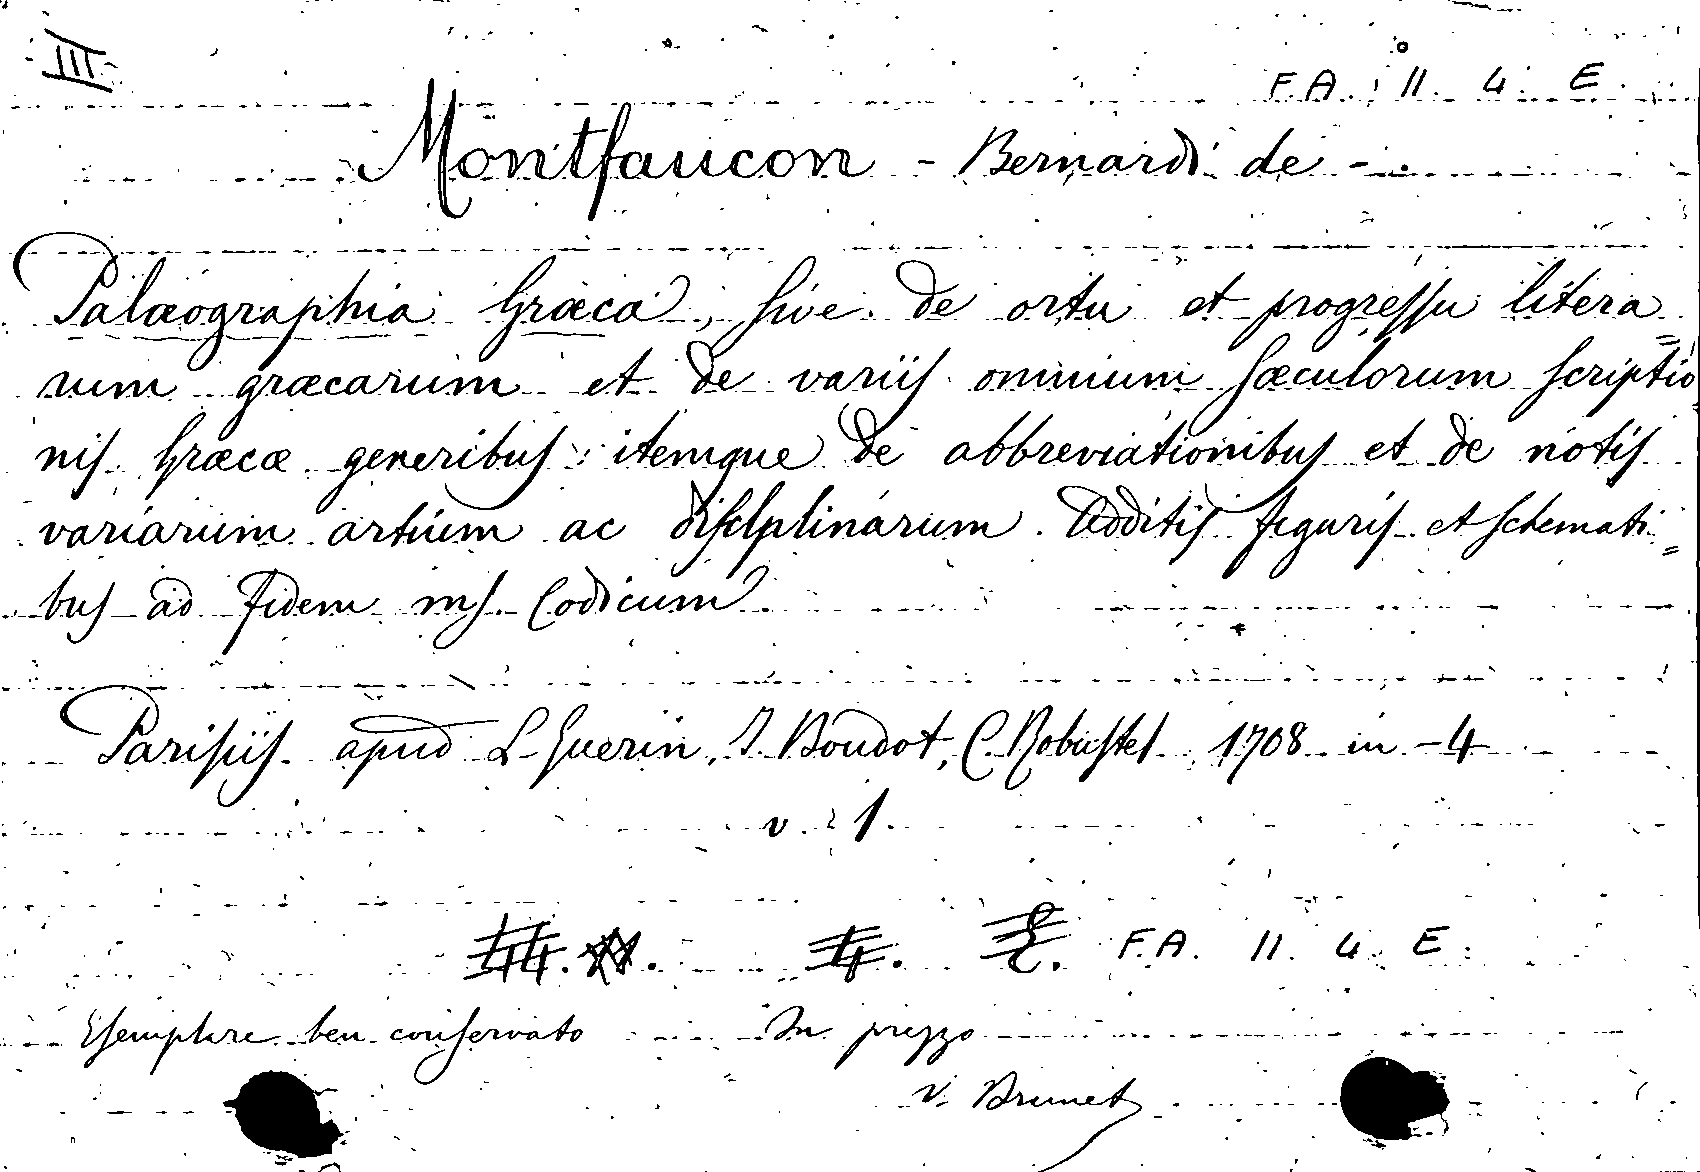 III
F.A. II. 4. E.
Montfaucon - Bernardi de -
Palæographia Græca, sive de ortu et progressu litera=
rum græcarum et de variis omnium sæculorum scriptio
nis Græcæ generibus: itemque de abbreviationibus et de notis
variarum artium ac disclplinarum. Additis figuris et schemati=
bus ad fidem ms. Codicum
Parisiis apud L. Guerin, J. Boudot, C. Robustel 1708 in-4
v. 1.
F.A. II. 4. E.
Esemplare ben conservato In prezzo
V. Brunet